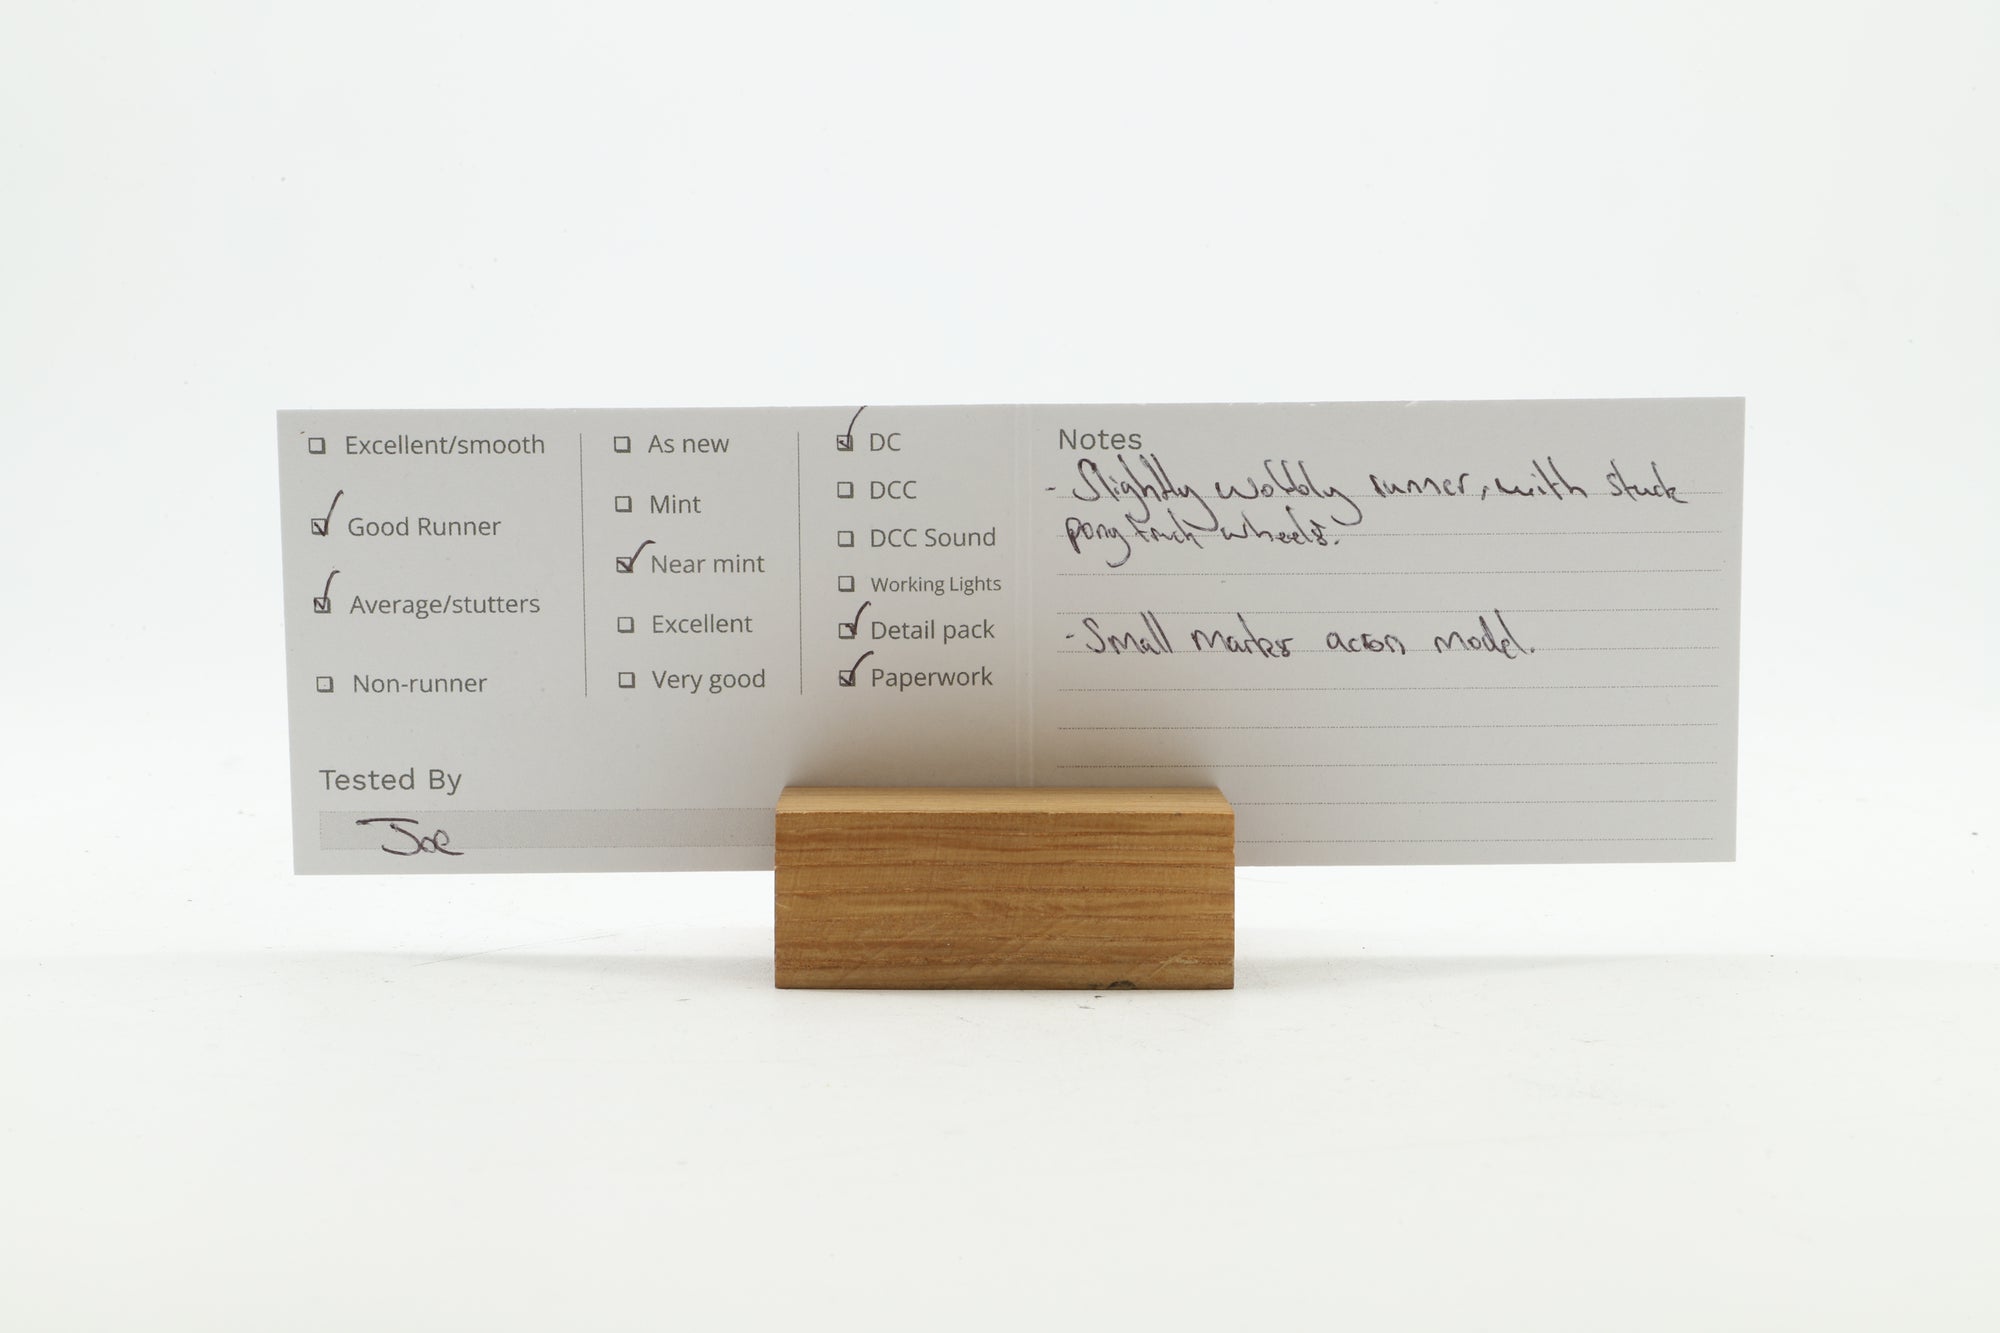 Excellent/smooth
Good Runner
Average/stutters
Non-runner
As new
Mint
Near mint
Excellent
Very good
DC
DCC
DCC Sound
Working Lights
Detail pack
Paperwork
Tested By
Joe
Notes
- Slightly wobbly runner, with stuck
pony truck wheels.
- Small marks across model.